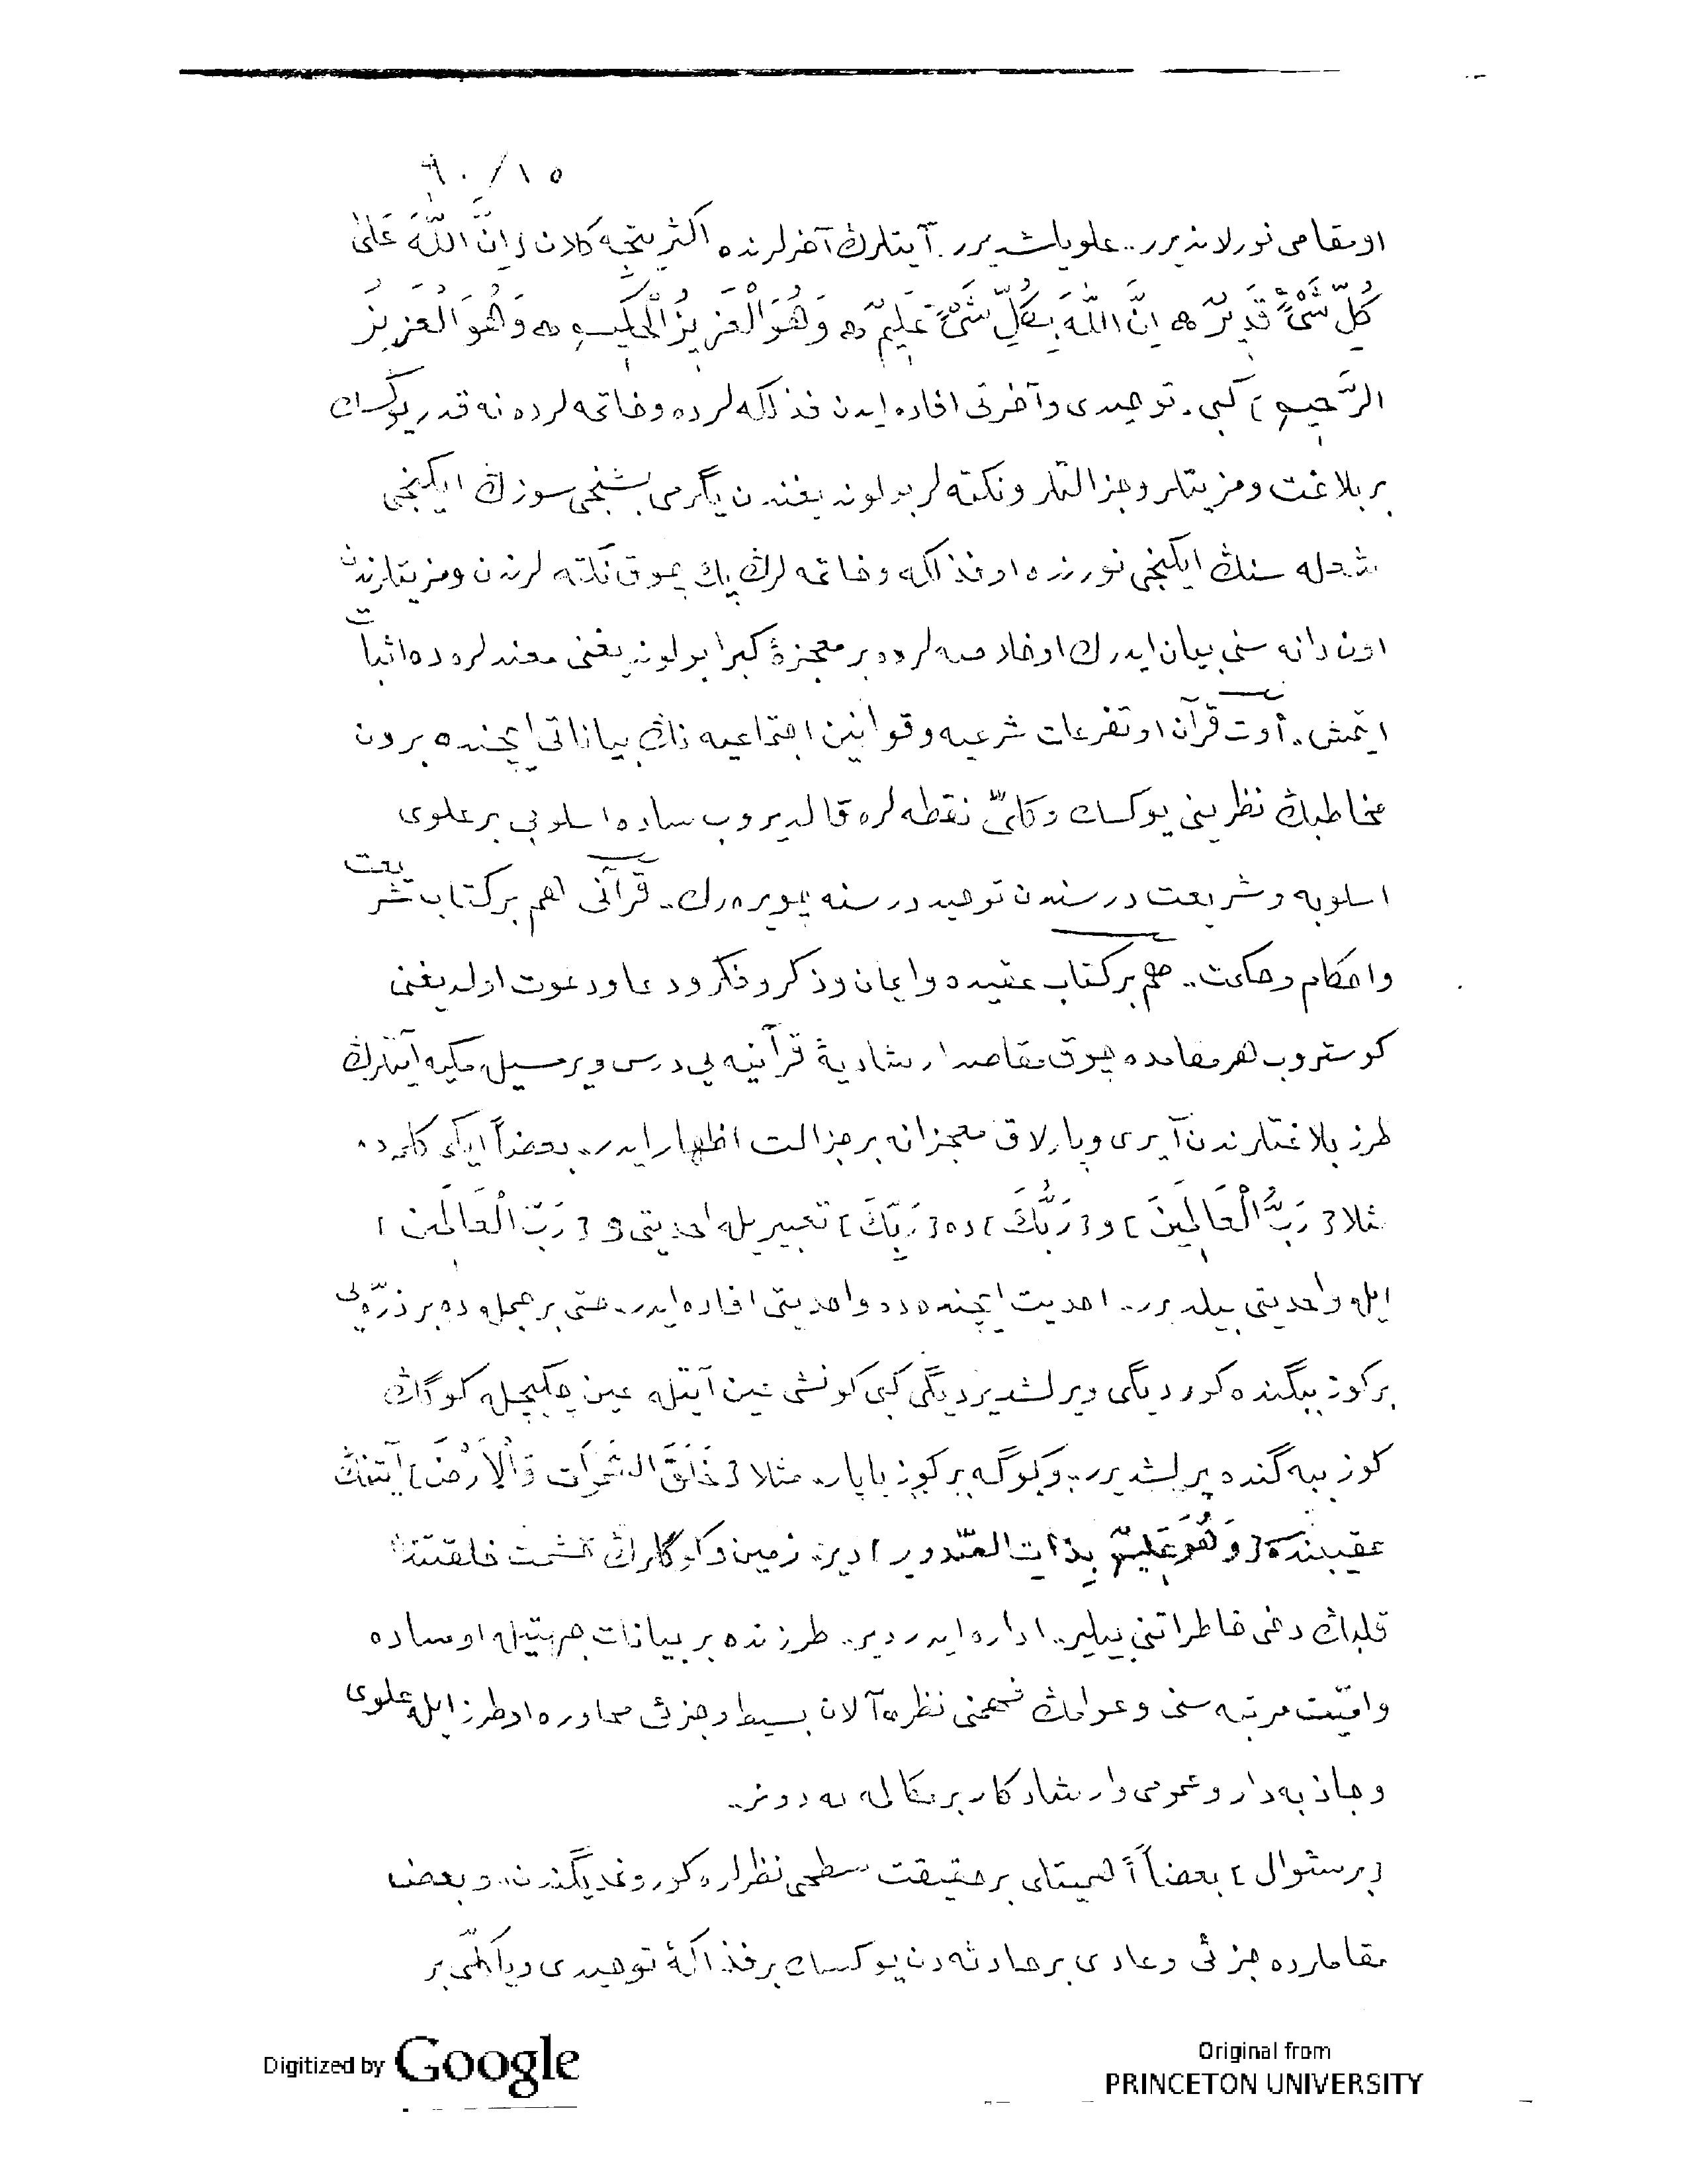 ٩٠/١٥
او مقامی نورلاندیرر.. علویلشدیرر. آیتلرڭ آخرلرنده اکثریتجه کلان [اِنَّ اللّٰهَ عَلٰى
كُلِّ شَىْءٍ قَدِيرٌ ۞ اِنَّ اللّٰهَ بِكُلِّ شَىْءٍ عَلِيمٌ ۞ وَهُوَ الْعَزِيزُ الْحَكِيمُ ۞ وَهُوَ الْعَزِيزُ
الرَّحِيمُ] کبی. توحیدی وآخرتی افاده ایدن فذلکه لرده وخاتمه لرده نه قدر یوکسك
بر بلاغت ومزیتلر وجزالتلر ونکته لر بولوندیغندن یگرمی بشنجی سوزڭ ایکنجی
شعله سنڭ ایکنجی نورنده او فذلکه وخاتمه لرڭ پك چوق نکته لرندن ومزیتلرندن
اون دانه سنی بیان ایدرك او خلاصه لرده بر معجزۀ کبرا بولوندیغنی معندلره ده اثبات
ایتمش. أوت قرآن او تفرعات شرعیه وقوانین اجتماعیه نڭ بیاناتی ایچنده بردن
مخاطبڭ نظرینی یوکسك وکلّی نقطه لره قالدیروب ساده اسلوبی بر علوی
اسلوبه وشریعت درسندن توحید درسنه چویره رك.. قرآنی هم بر کتاب شریعت
واحکام وحکمت.. هم بر کتاب عقیده وایمان وذکر وفکر ودعا ودعوت اولدیغنی
کوستروب هر مقامده چوق مقاصد ارشادیۀ قرآنیه یی درس ویرمسیله مکیه آیتلرڭ
طرز بلاغتلرندن آیری وپارلاق معجزانه بر جزالت اظهار ایدر.. بعضاً ایکی کلمه ده
مثلا [رَبُّ الْعَالَمِينَ] و [رَبُّكَ] ده [رَبُّكَ] تعبیریله احدیتی و [رَبُّ الْعَالَمِينَ]
ایله واحدیتی بیلدیرر.. احدیت ایچنده ده واحدیتی افاده ایدر.. حتی بر جمله ده بر ذرّه یی
بر کوز ببگنده کوردیگی ویرلشدیردیگی کبی کونشی عین آیتله عین چکیچله کوگڭ
کوز ببه گنده یرلشدیرر.. وکوگه بر کوز یاپار.. مثلا [خَلَقَ السَّمٰوَاتِ وَالْاَرْضَ] آیتنڭ
عقیبنده [وَهُوَ عَلِيمٌ بِذَاتِ الصُّدُورِ] دیر.. زمین وکوکلرڭ حشمت خلقتنده
قلبڭ دخی خاطراتنی بیلیر.. اداره ایدر دیر.. طرزنده بر بیانات جهتیله او ساده
وامّیّت مرتبه سنی وعوامڭ فهمنی نظره آلان بسیط وجزئی محاوره او طرز ایله علوی
وجاذبه دار وعمومی وارشادکار بر مکالمه یه دونر..
[بر سئوال] بعضاً أهمیتلی بر حقیقت سطحی نظرلره کورونمدیگندن.. وبعض
مقاملرده جزئی وعادی بر حادثه دن یوکسك بر فذلکۀ توحیدی ویا کلّی بر
Digitized by Google
Original from
PRINCETON UNIVERSITY